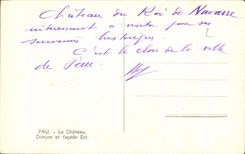 Château du Roi de Navarre
intéressant à visiter pour ses
souvenirs historiques.
C'est le clou de la ville
de Pau.
PAU. - Le Château.
Donjon et façade Est.